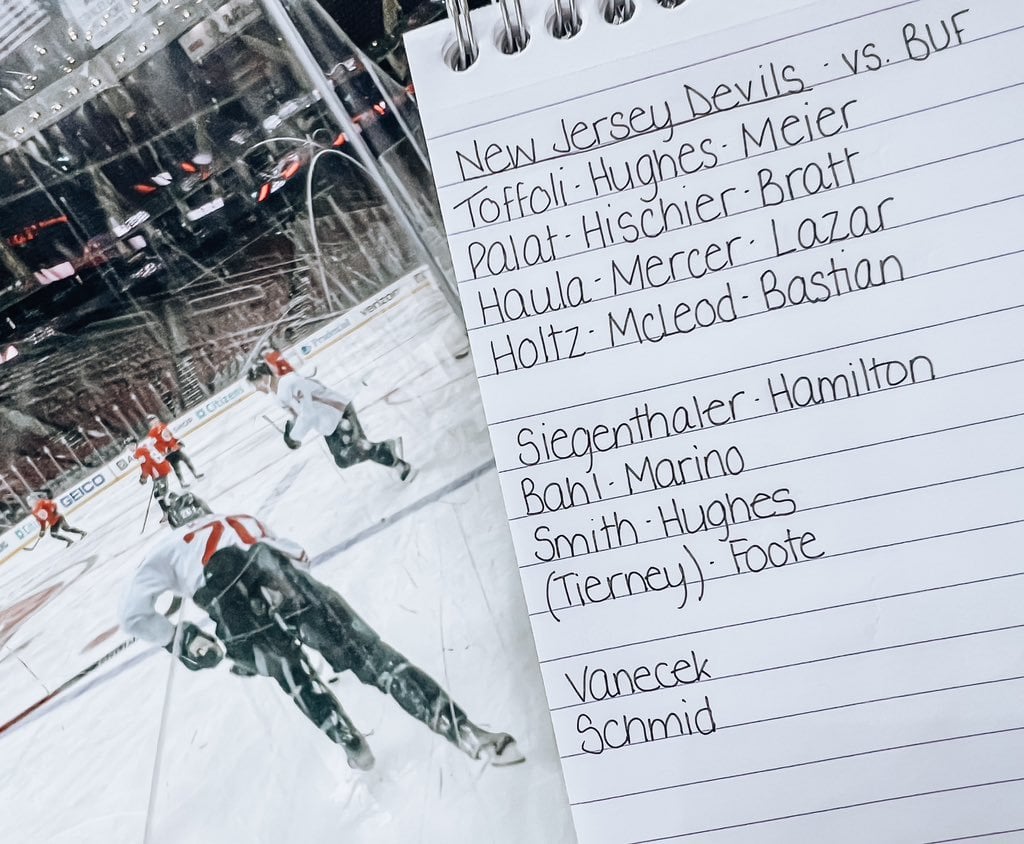 New Jersey Devils · vs. BUF
Toffoli · Hughes · Meier
Palat · Hischier · Bratt
Haula · Mercer · Lazar
Holtz · McLeod · Bastian
Siegenthaler · Hamilton
Bahl · Marino
Smith · Hughes
(Tierney) · Foote
Vanecek
Schmid
Prudential
verizon
Citizens
GEICO
70